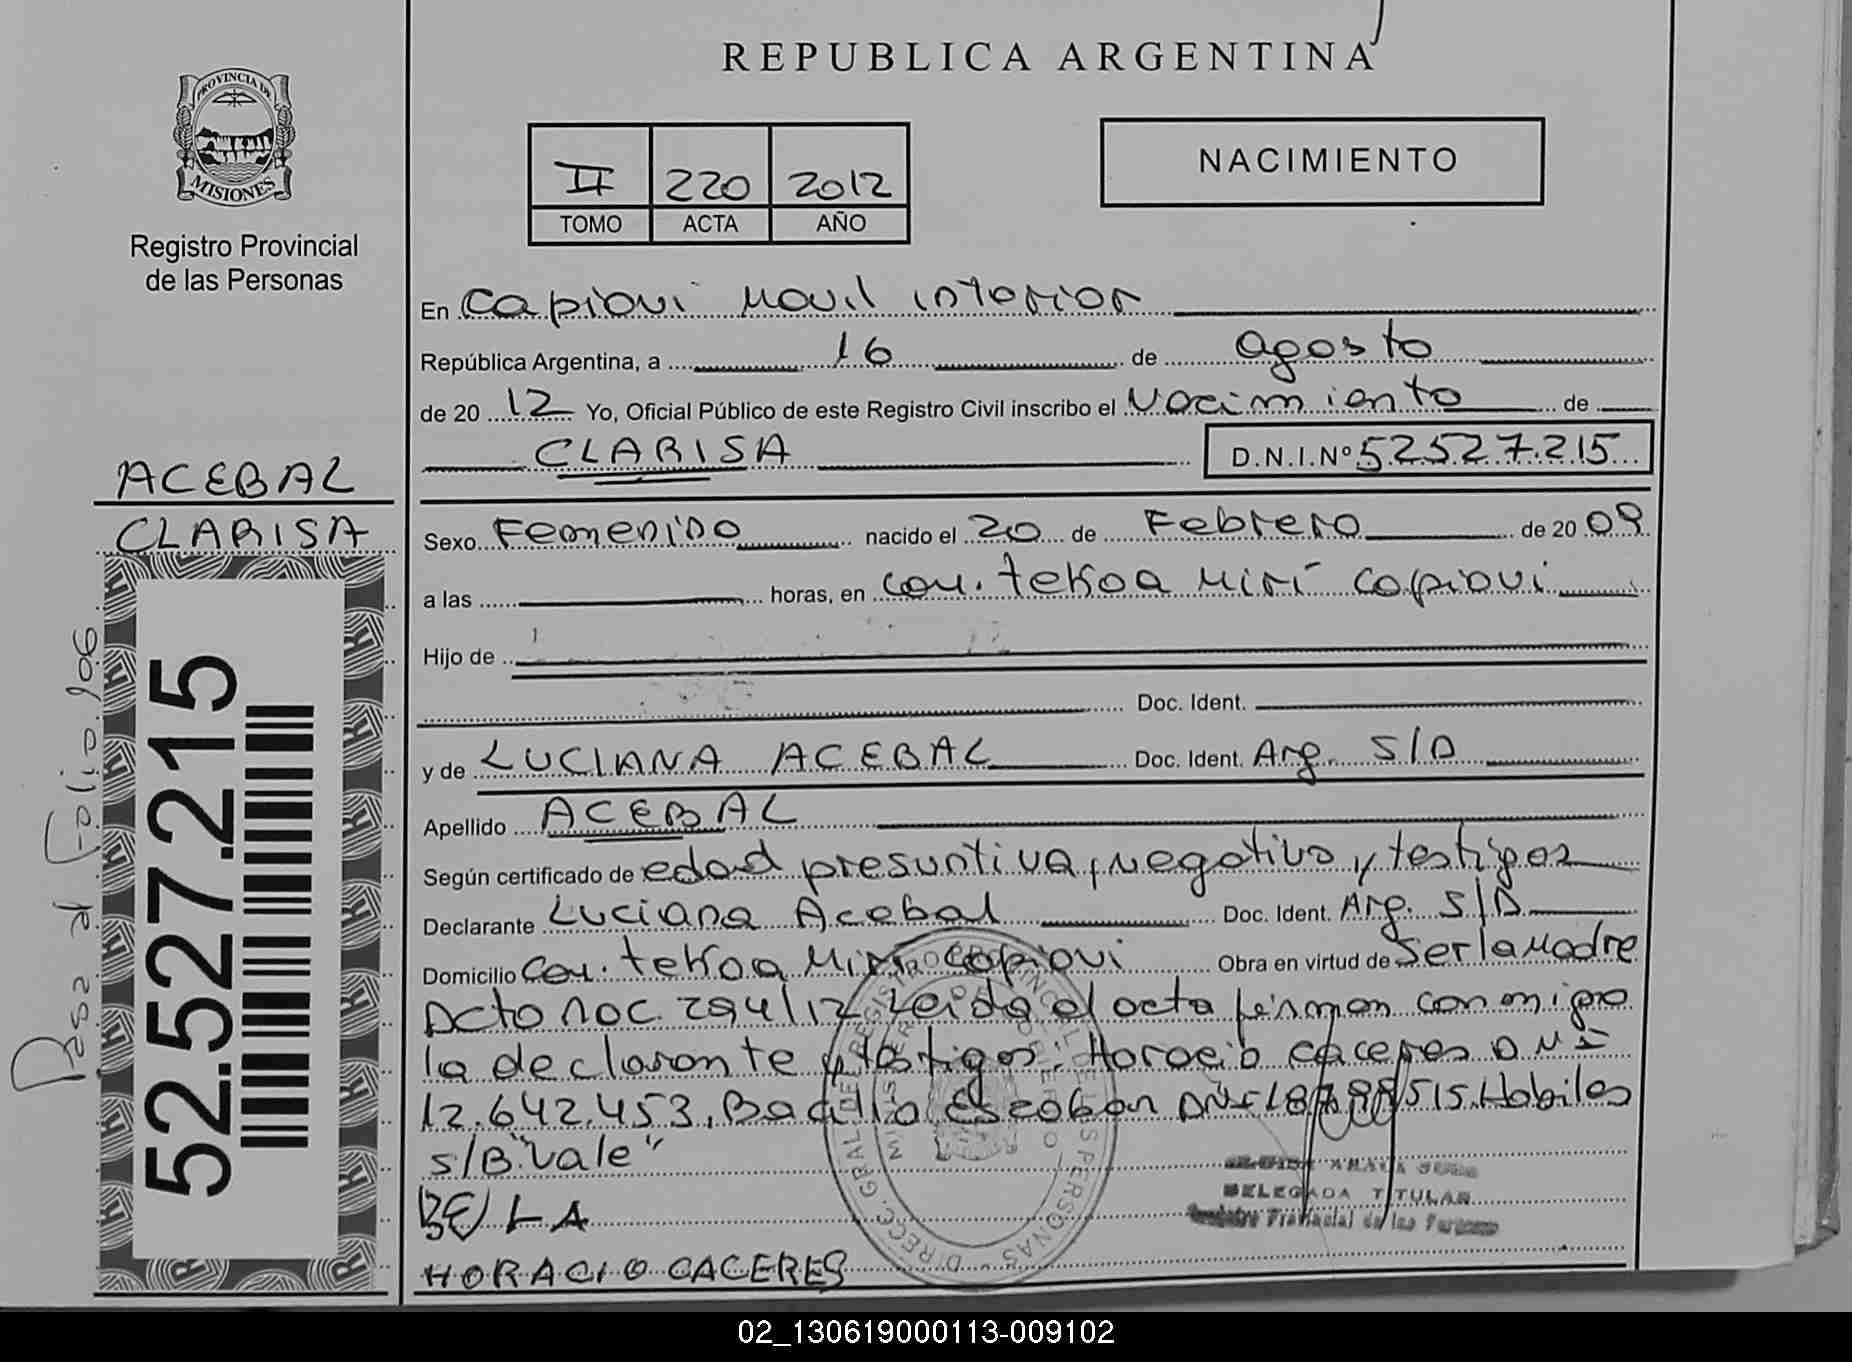 REPUBLICA ARGENTINA
PROVINCIA DE
MISIONES
Registro Provincial
de las Personas
II 220 2012
TOMO ACTA AÑO
NACIMIENTO
En Capiovi Movil interior
República Argentina, a 16 de agosto
de 20 12 Yo, Oficial Público de este Registro Civil inscribo el Nacimiento de
CLARISA D.N.I.Nº 52527.215
ACEBAL
CLARISA
52.527.215
Pasa al Folio 106
Sexo Femenino nacido el 20 de Febrero de 20 09
a las horas, en com. tekoa Mirí Capiovi
Hijo de
Doc. Ident.
y de LUCIANA ACEBAL Doc. Ident. Arg. S/D
Apellido ACEBAL
Según certificado de edad presuntiva, negativo y testigos
Declarante Luciana Acebal Doc. Ident. Arg. S/D
Domicilio Com. tekoa Miri Capiovi Obra en virtud de Ser la Madre
Dcto Nac. 294/12 Leida el acta firman conmigo
la declarante y testigos: Horacio Caceres DNI
12.642.453, Escobar DNI Habiles
s/B "Vale"
LA
HORACIO CACERES
DELEGADA TITULAR
Registro Provincial de las Personas
DIRECC. GRAL DE REGISTRO PROVINCIAL DE LAS PERSONAS
02_130619000113-009102